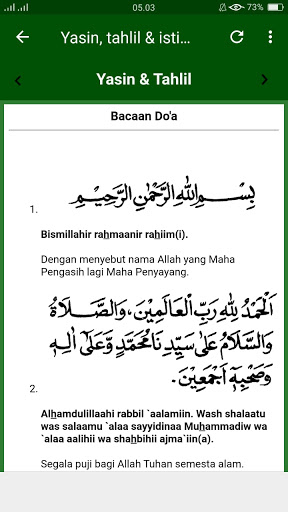 05.03
73%
Yasin, tahlil & isti...
Yasin & Tahlil
Bacaan Do'a
1.
بِسْمِ اللهِ الرَّحْمٰنِ الرَّحِيْمِ
Bismillahir rahmaanir rahiim(i).
Dengan menyebut nama Allah yang Maha
Pengasih lagi Maha Penyayang.
2.
اَلْحَمْدُ لِلّٰهِ رَبِّ الْعَالَمِيْنَ، وَالصَّلَاةُ
وَالسَّلَامُ عَلٰى سَيِّدِنَا مُحَمَّدٍ وَّعَلٰى اٰلِهٖ
وَصَحْبِهٖٓ اَجْمَعِيْنَ.
Alhamdulillaahi rabbil `aalamiin. Wash shalaatu
was salaamu `alaa sayyidinaa Muhammadiw wa
`alaa aalihii wa shahbihii ajma`iin(a).
Segala puji bagi Allah Tuhan semesta alam.